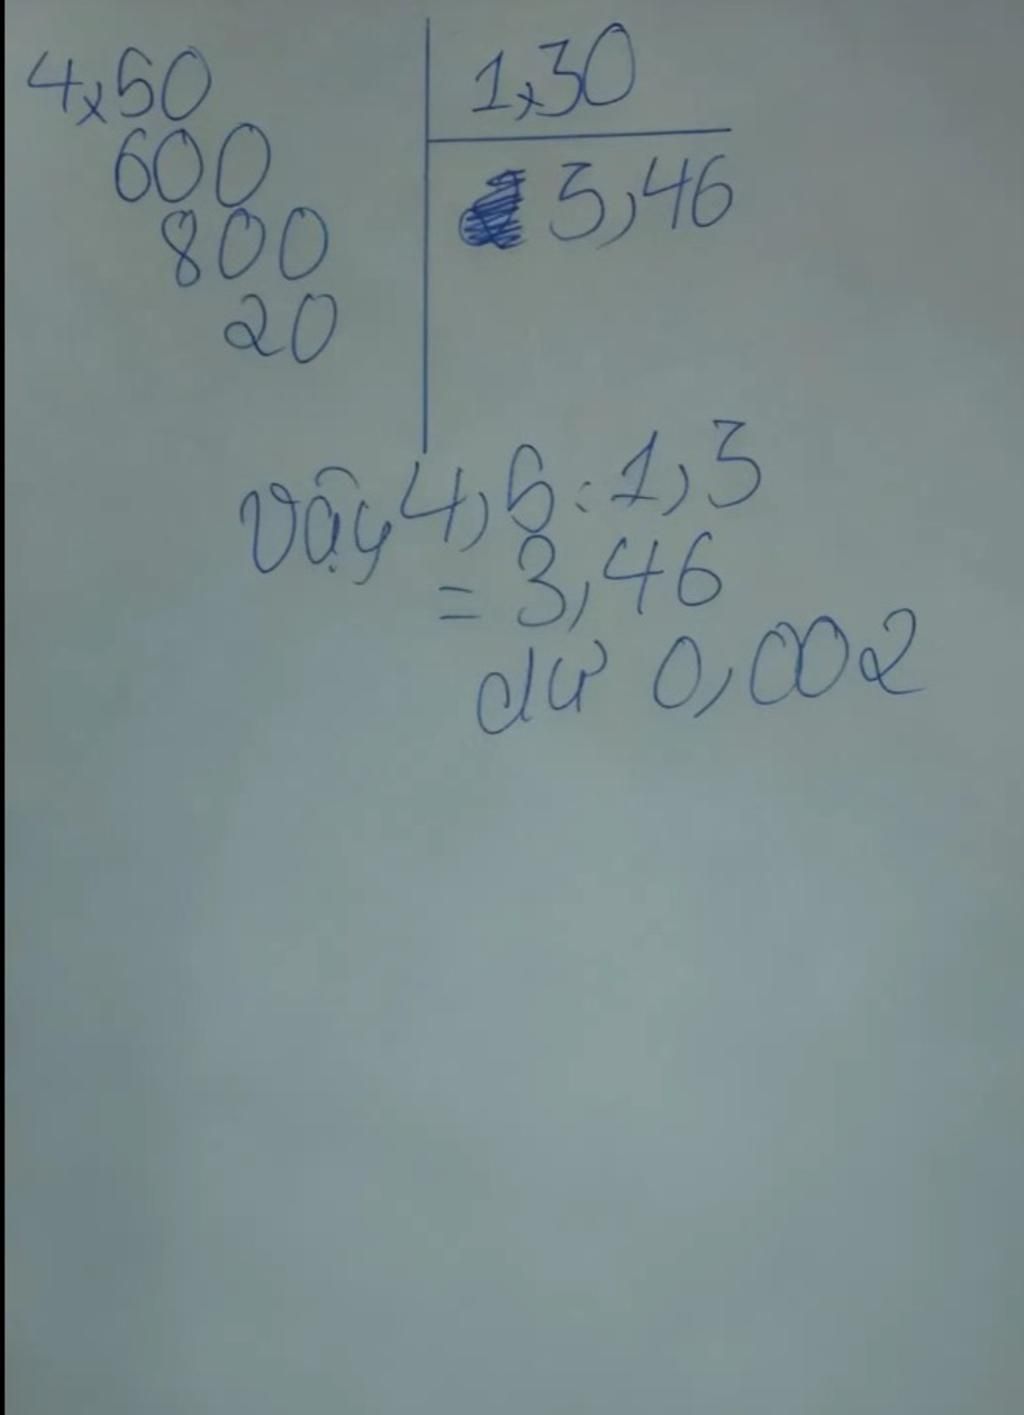 4,50
1,30
600
3,46
800
20
Vậy 4,5 : 1,3
= 3,46
dư 0,002